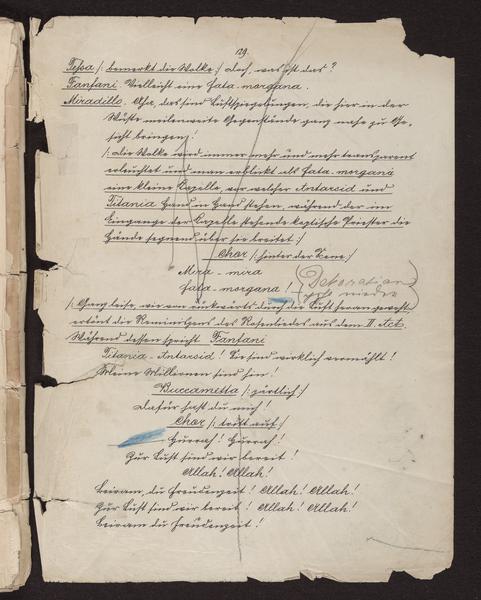 129.
Tessa /: bemerkt die Wolke :/ Doch, was ist das?
Fanfani. Vielleicht eine fata-morgana.
Miradillo. Aha, das sind Luftspiegelungen, die hier in der
Wüste meilenweite Gegenstände ganz nahe zu Ge-
sicht bringen!
/: Die Wolke wird immer mehr und mehr transparent
erleuchtet und man erblickt als fata-morgana
eine kleine Capelle, vor welcher Intarsid und
Titania Hand in Hand stehen, während der im
Eingange der Capelle stehende koptische Priester die
Hände segnend über sie breitet :/
Chor /: hinter der Scene :/
Mira - mira
fata-morgana!
(Dekoration
geht nieder)
/: Ganz leise, wie von rückwärts durch die Luft herangeweht,
ertönt die Reminiscenz des Rosenliedes aus dem II. Act.
Während dessen spricht Fanfani
Titania - Intarsid! Sie sind wirklich vermählt!
Meine Millionen sind hin!
Buccametta /: zärtlich :/
Dafür hast du mich!
Chor /: tritt auf :/
Hurrah! Hurrah!
Zur Lust sind wir bereit!
Allah! Allah!
Beiram, du Freudenzeit! Allah! Allah!
Zur Lust sind wir bereit! Allah! Allah!
Beiram du Freudenzeit!